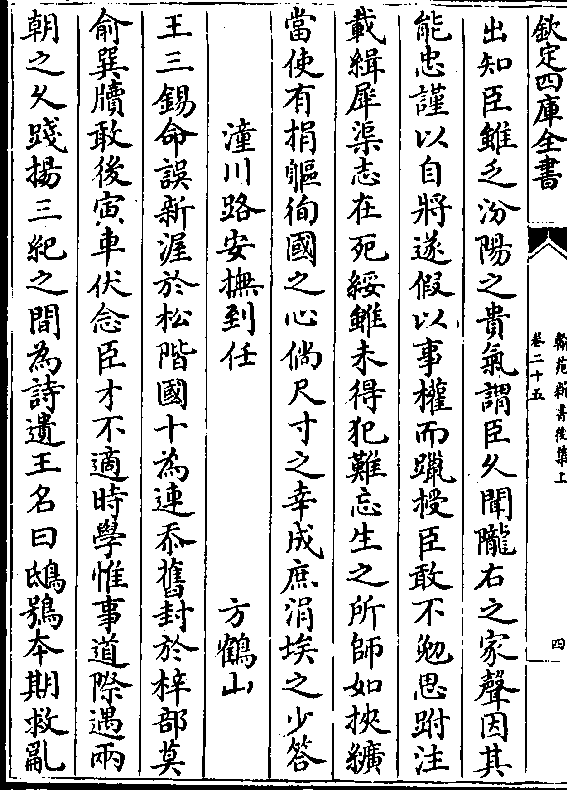 欽定四庫全書
翰苑新書後集上
卷二十五
四
出知臣雖乏汾陽之貴氣謂臣乆聞隴右之家聲因其
能忠謹以自將遂假以事權而躐授臣敢不勉思跗注
載緝犀渠志在死綏雖未得犯難忘生之所師如挾纊
當使有捐軀徇國之心倘尺寸之幸成庶涓埃之少答
潼川路安撫到任
方鶴山
王三錫命誤新渥於松階國十為連忝舊封於梓部莫
俞巽牘敢後寅車伏念臣才不適時學惟事道際遇兩
朝之乆踐揚三紀之間為詩遺王名曰鴟鴞本期救亂